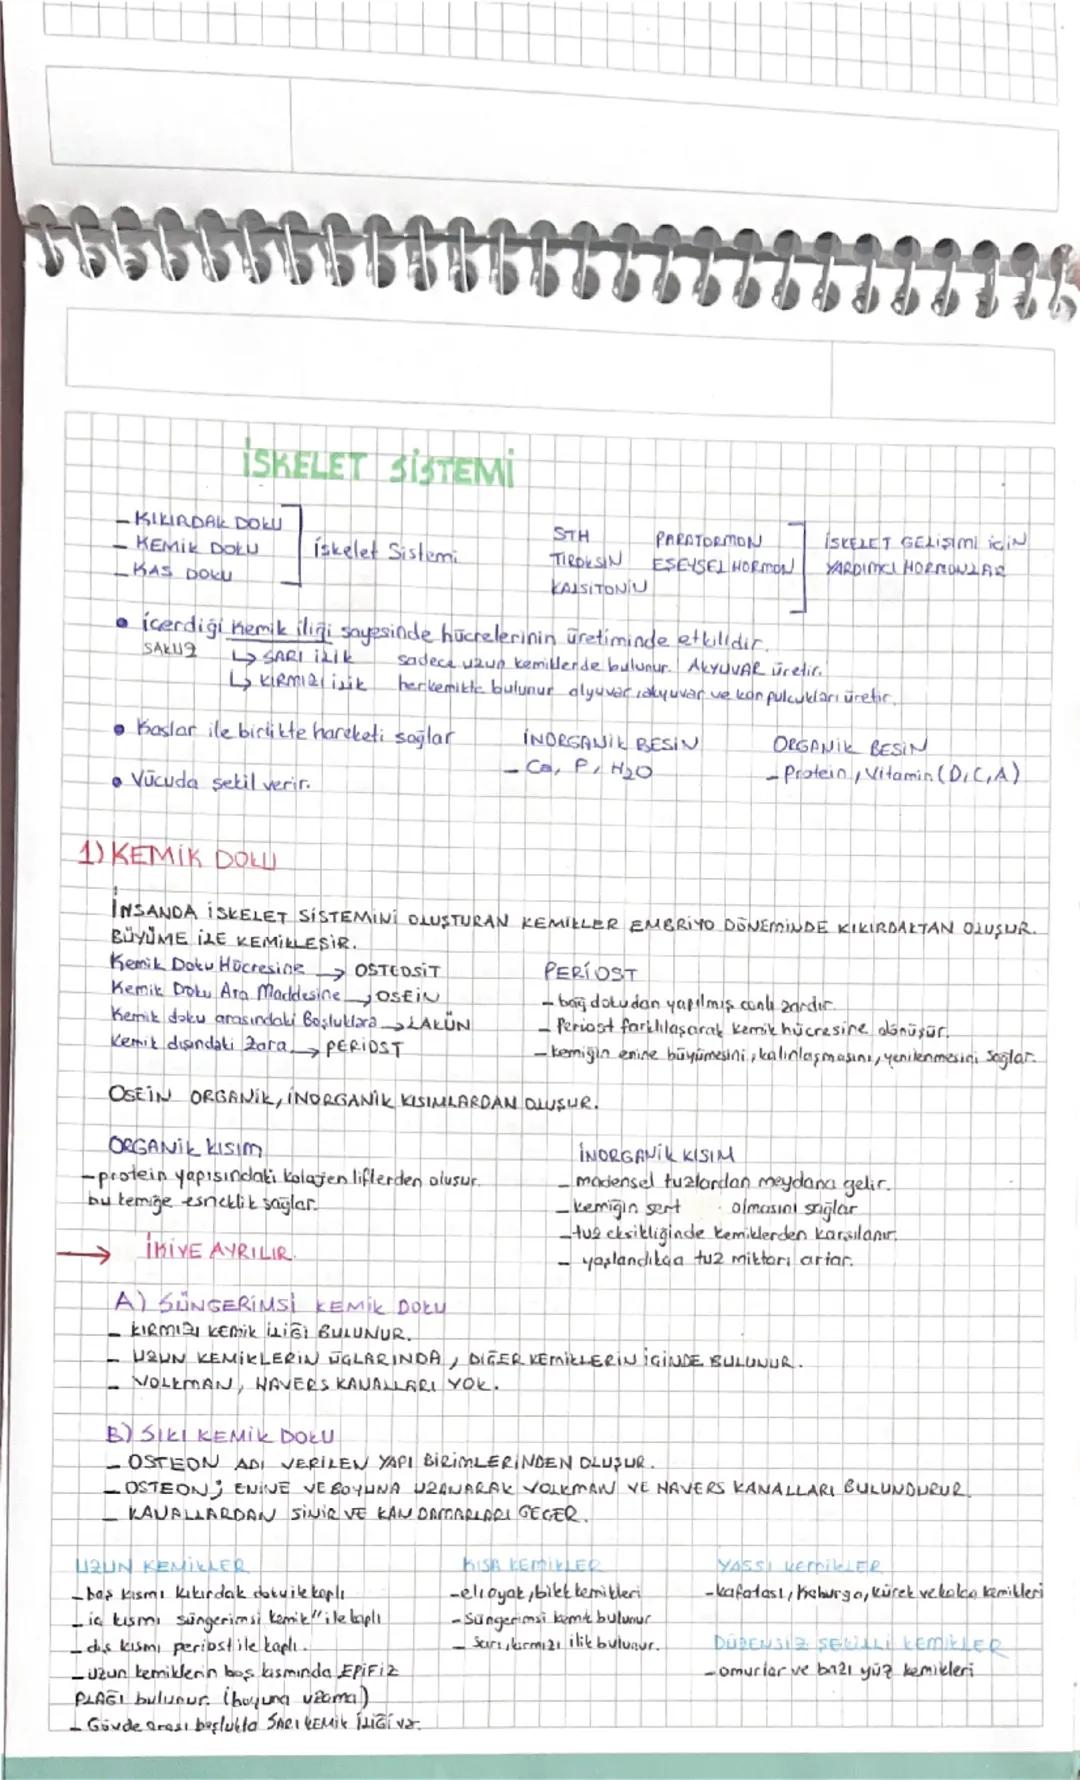 İSKELET SİSTEMİ
- KIKIRDAK DOKU
- KEMİK DOKU
- KAS DOKU
İskelet Sistemi
STH PARATORMON
TİROKSİN EŞEYSEL HORMON
KALSİTONİN
İSKELET GELİŞİMİ İÇİN
YARDIMCI HORMONLAR
• İçerdiği kemik iliği sayesinde hücrelerinin üretiminde etkilidir.
↳ SARI İLİK sadece uzun kemiklerde bulunur. AKYUVAR üretir.
↳ KIRMIZI ilik her kemikte bulunur alyuvar, akyuvar ve kan pulcukları üretir.
• Kaslar ile birlikte hareketi sağlar
• Vücuda şekil verir.
İNORGANİK BESİN
- Ca, P, H2O
ORGANİK BESİN
- Protein, Vitamin (D, C, A)
1) KEMİK DOKU
İNSANDA İSKELET SİSTEMİNİ OLUŞTURAN KEMİKLER EMBRİYO DÖNEMİNDE KIKIRDAKTAN OLUŞUR.
BÜYÜME İLE KEMİKLEŞİR.
Kemik Doku Hücresine → OSTEOSİT
Kemik Doku Ara Maddesine → OSEİN
Kemik doku arasındaki Boşluklara → LAKÜN
Kemik dışındaki Zara → PERİOST
PERİOST
- bağ dokudan yapılmış canlı zardır.
- Periost farklılaşarak kemik hücresine dönüşür.
- kemiğin enine büyümesini, kalınlaşmasını, yenilenmesini sağlar.
OSEİN ORGANİK, İNORGANİK KISIMLARDAN OLUŞUR.
ORGANİK KISIM
- protein yapısındaki kolajen liflerden oluşur.
bu kemiğe esneklik sağlar.
İNORGANİK KISIM
- madensel tuzlardan meydana gelir.
- kemiğin sert olmasını sağlar
- tuz eksikliğinde kemiklerden karşılanır.
- yaşlandıkça tuz miktarı artar.
→ İKİYE AYRILIR.
A) SÜNGERİMSİ KEMİK DOKU
- KIRMIZI KEMİK İLİĞİ BULUNUR.
- UZUN KEMİKLERİN UÇLARINDA, DİĞER KEMİKLERİN İÇİNDE BULUNUR.
- VOLKMAN, HAVERS KANALLARI YOK.
B) SIKI KEMİK DOKU
- OSTEON ADI VERİLEN YAPI BİRİMLERİNDEN OLUŞUR.
- OSTEON; ENİNE VE BOYUNA UZANARAK VOLKMAN VE HAVERS KANALLARI BULUNDURUR.
- KANALLARDAN SİNİR VE KAN DAMARLARI GEÇER.
UZUN KEMİKLER
- baş kısmı kıkırdak doku ile kaplı
- iç kısmı süngerimsi kemik" ile kaplı
- dış kısmı periost ile kaplı.
- uzun kemiklerin baş kısmında EPİFİZ
PLAĞI bulunur. (boyuna uzama)
- Gövde arası boşlukta SARI KEMİK İLİĞİ var.
KISA KEMİKLER
- el, ayak, bilek kemikleri
- Süngerimsi kemik bulunur
- Sarı, kırmızı ilik bulunur.
YASSI KEMİKLER
- kafatası, kaburga, kürek ve kalça kemikleri
DÜZENSİZ ŞEKİLLİ KEMİKLER
- omurlar ve bazı yüz kemikleri